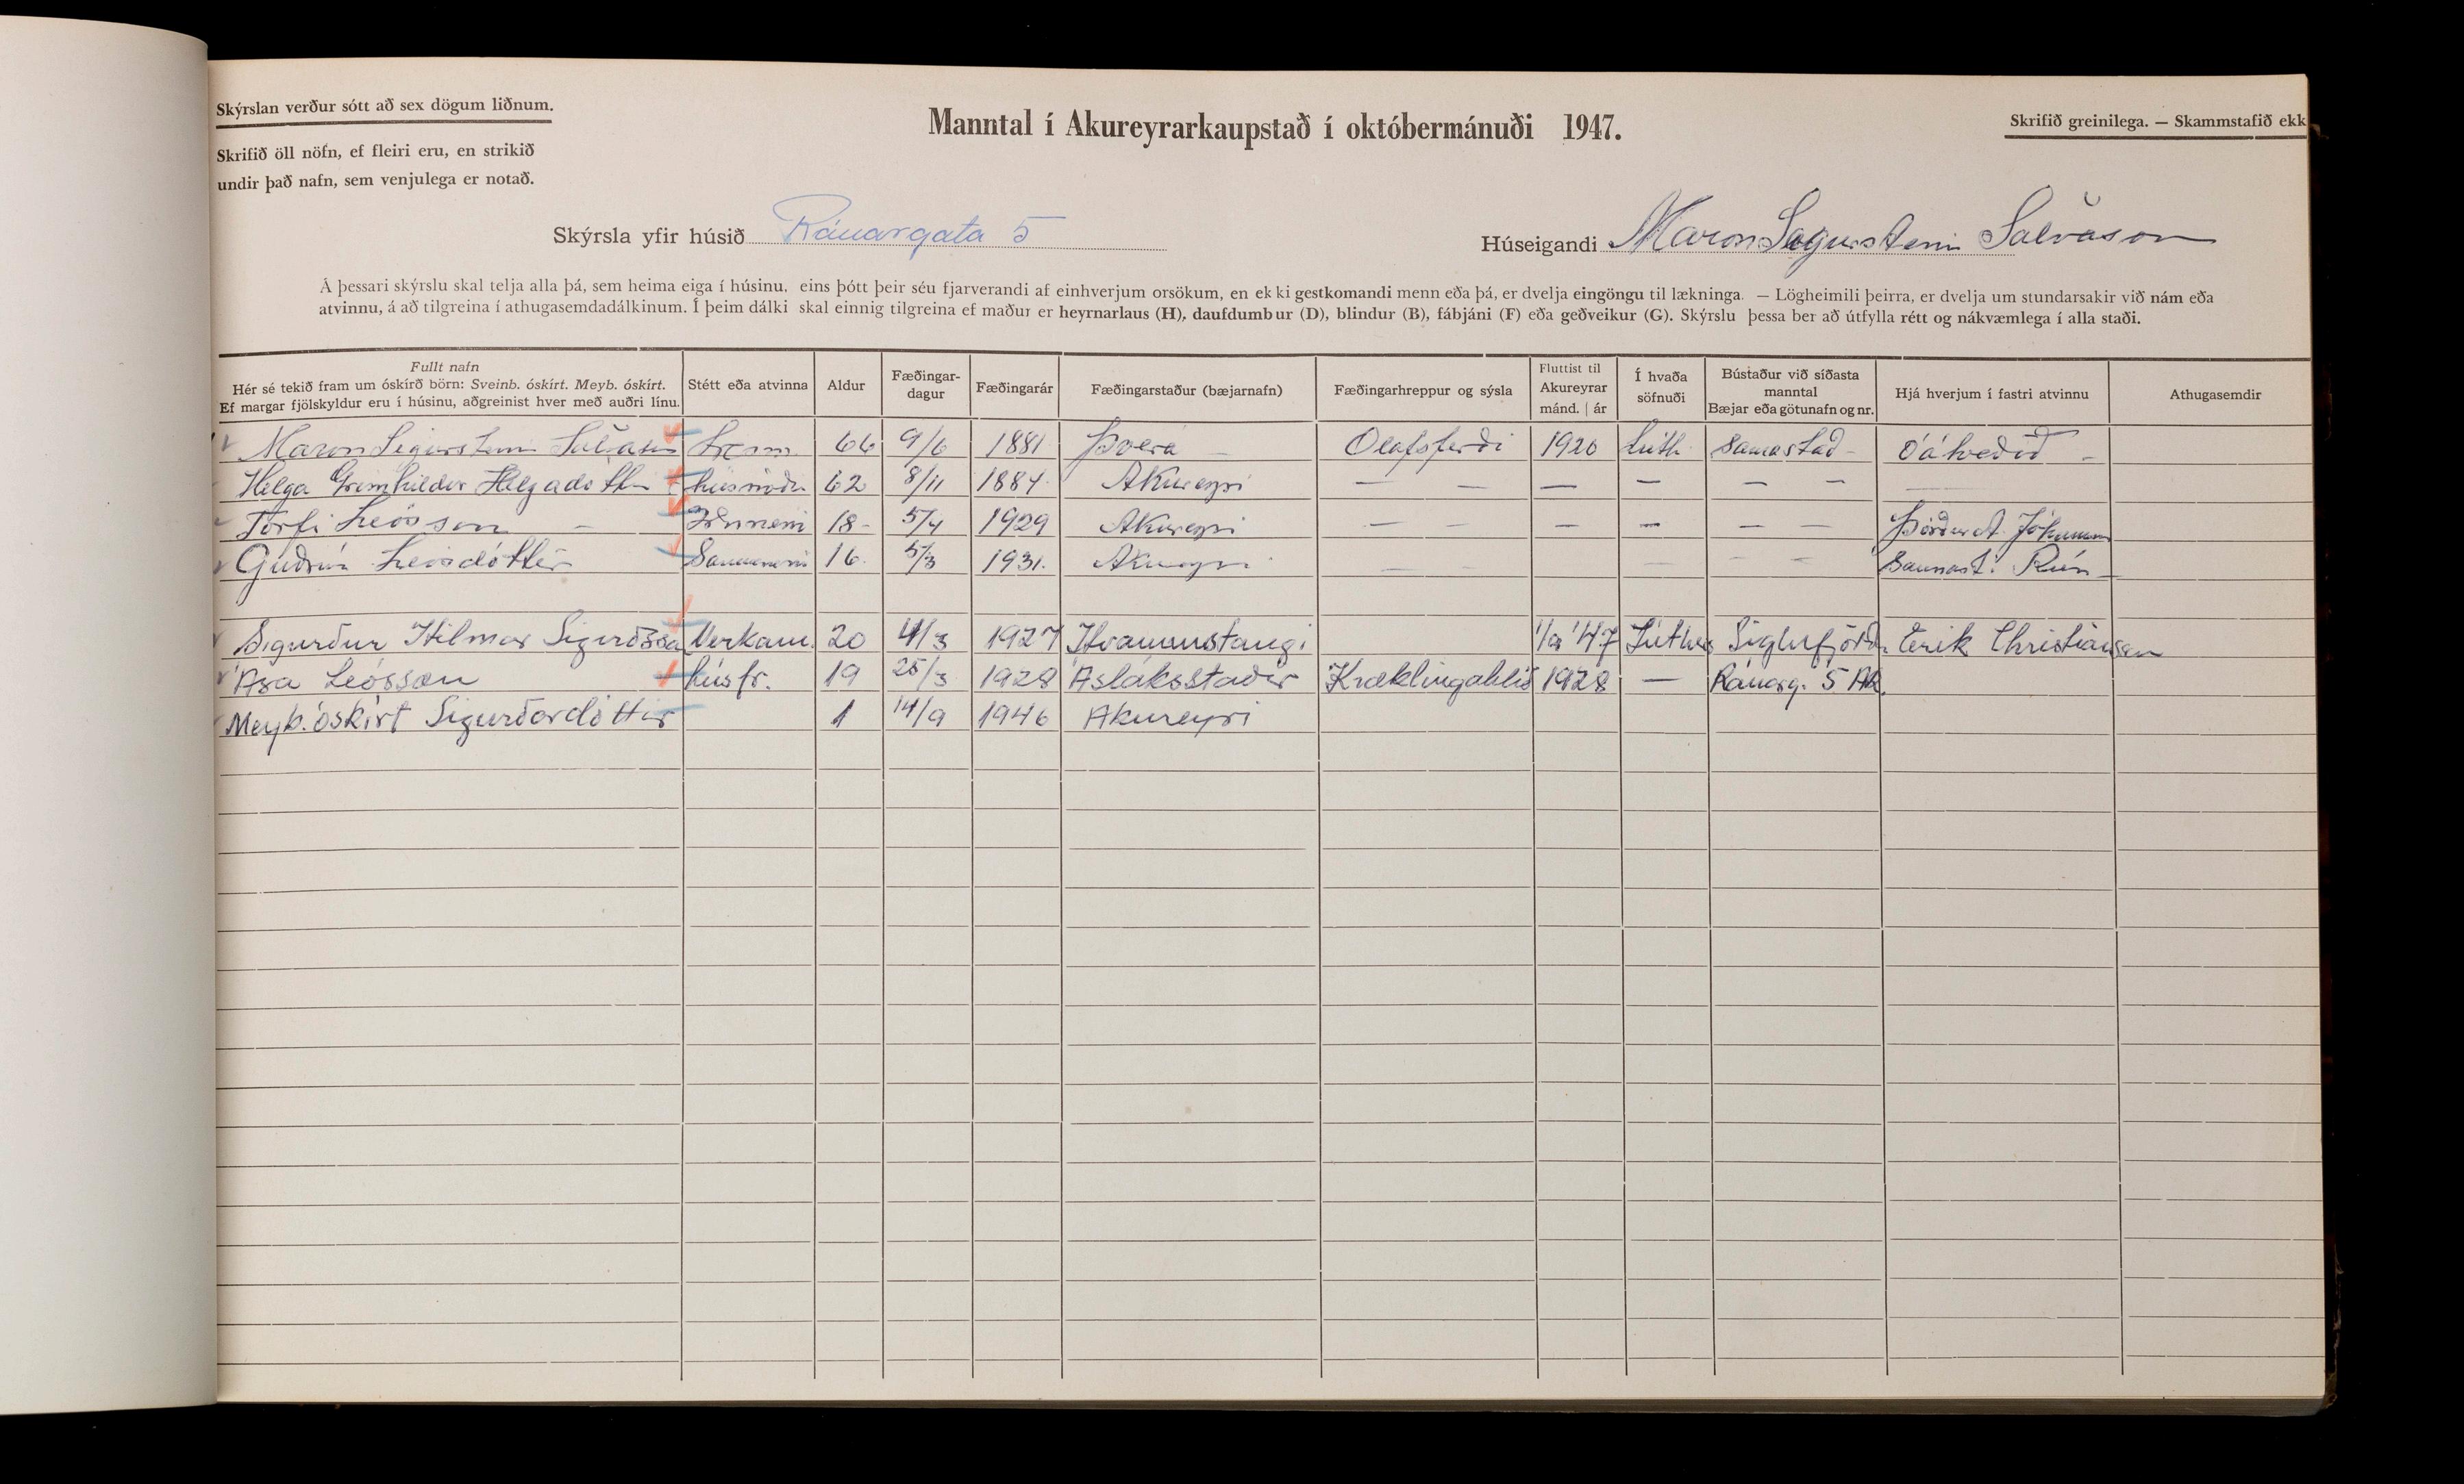 Skýrslan verður sótt að sex dögum liðnum.
Skrifið öll nöfn, ef fleiri eru, en strikið
undir það nafn, sem venjulega er notað.
Manntal í Akureyrarkaupstað í októbermánuði 1947.
Skrifið greinilega. — Skammstafið ekk
Skýrsla yfir húsið Ránargata 5
Húseigandi Maron Sigursteinn Sölvason
Á þessari skýrslu skal telja alla þá, sem heima eiga í húsinu, eins þótt þeir séu fjarverandi af einhverjum orsökum, en ekki gestkomandi menn eða þá, er dvelja eingöngu til lækninga. — Lögheimili þeirra, er dvelja um stundarsakir við nám eða
atvinnu, á að tilgreina í athugasemdadálkinum. Í þeim dálki skal einnig tilgreina ef maður er heyrnarlaus (H), daufdumbur (D), blindur (B), fábjáni (F) eða geðveikur (G). Skýrslu þessa ber að útfylla rétt og nákvæmlega í alla staði.
Fullt nafn
Hér sé tekið fram um óskírð börn: Sveinb. óskírt. Meyb. óskírt.
Ef margar fjölskyldur eru í húsinu, aðgreinist hver með auðri línu.
Stétt eða atvinna
Aldur
Fæðingar-
dagur
Fæðingarár
Fæðingarstaður (bæjarnafn)
Fæðingarhreppur og sýsla
Fluttist til
Akureyrar
mánd. | ár
Í hvaða
söfnuði
Bústaður við síðasta
manntal
Bæjar eða götunafn og nr.
Hjá hverjum í fastri atvinnu
Athugasemdir
Maron Sigursteinn Sölvason 66 9/6 1881 Þverá Olafsferði 1920 Lúth. Samastað - Óákveðið -
Helga Grímhildur Helgadóttir húsmóðir 62 8/11 1884 Akureyri — — — — — —
Torfi Leósson - Iðnnemi 18 - 5/4 1929 Akureyri — — — — — — Þórður A. Jóhannss
Guðrún Leósdóttir Saumanemi 16 5/3 1931. Akureyri — — — — — Saumast. Rún -
Sigurður Hilmar Sigurðsso Verkam. 20 4/3 1927 Hvammstangi 1/9 '47 Lúther Siglufjörðu Eirik Christiansen
Ása Leóssen húsfr. 19 25/3 1928 Ásláksstaðir Kræklingahlíð 1928 — Ránarg. 5 AK.
Meyb. óskírt Sigurðardóttir 1 14/9 1946 Akureyri